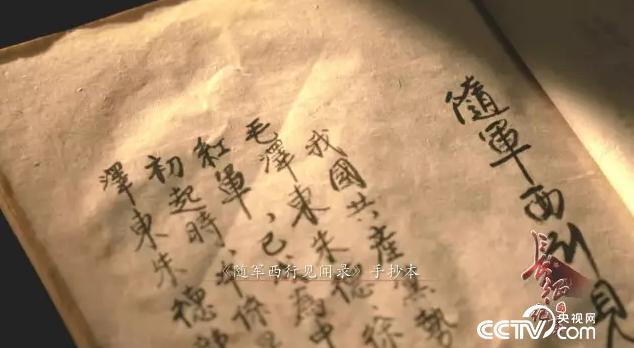 隨軍西行見
我國共產黨勢
毛澤東朱德、徐
紅軍、已為中
初起時
澤東朱德
《随军西行见闻录》手抄本
长征
CCTV 央视网
com